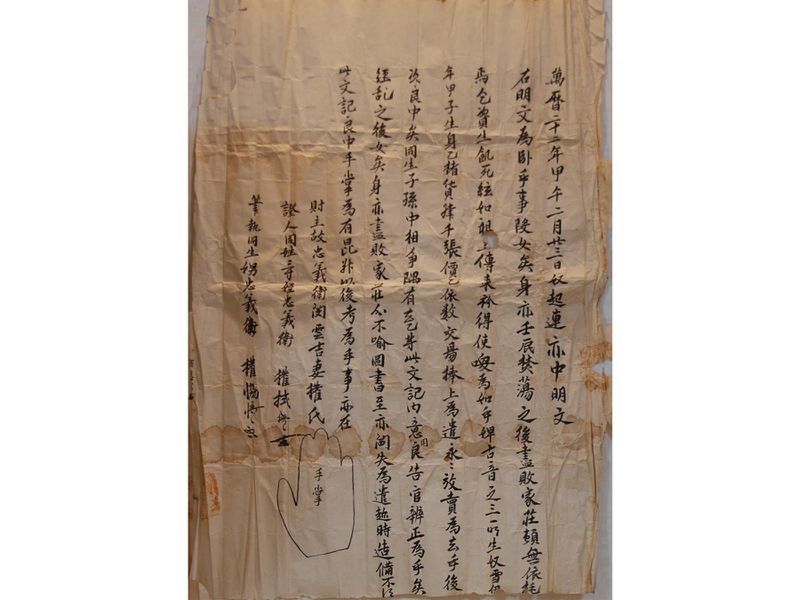 萬曆二十二年甲午二月廿三日奴起連亦中明文
右明文爲卧乎事段女矣身亦壬辰焚蕩之後盡敗家莊頼無依托
爲乞資生飢死絃如祖上傳来衿得使喚爲如乎婢古音之三所生奴雪
年甲子生身乙楮貨捧千張價乙依數交易捧上爲遣永〻放賣爲去乎後
次良中矣同生子孫中相爭隅有去乙等此文記内意用良告官辨正爲乎矣
經乱之後女矣身亦盡敗家莊分不喻圖書至亦閪失爲遣趂時造備不
此文記良中手掌爲有昆幷以後考爲乎事亦在
財主故忠義衛閔雲吉妻權氏
手掌
證人同姓三寸姪忠義衛 權
筆執同生娚忠義衛 權